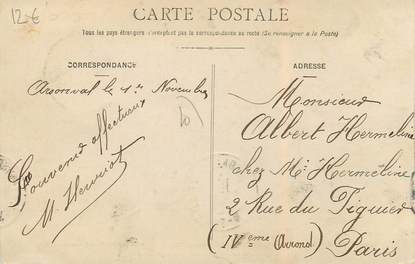 12-€
CARTE POSTALE
Tous les pays étrangers n'acceptent pas la correspondance au recto (Se renseigner à la Poste)
CORRESPONDANCE
Arsonval le 1er Novembre
Souvenir affectueux
M. Henriot
ADRESSE
Monsieur
Albert Hermeline
chez Mr Hermeline
2 Rue du Figuier
(IVeme Arrond)
Paris